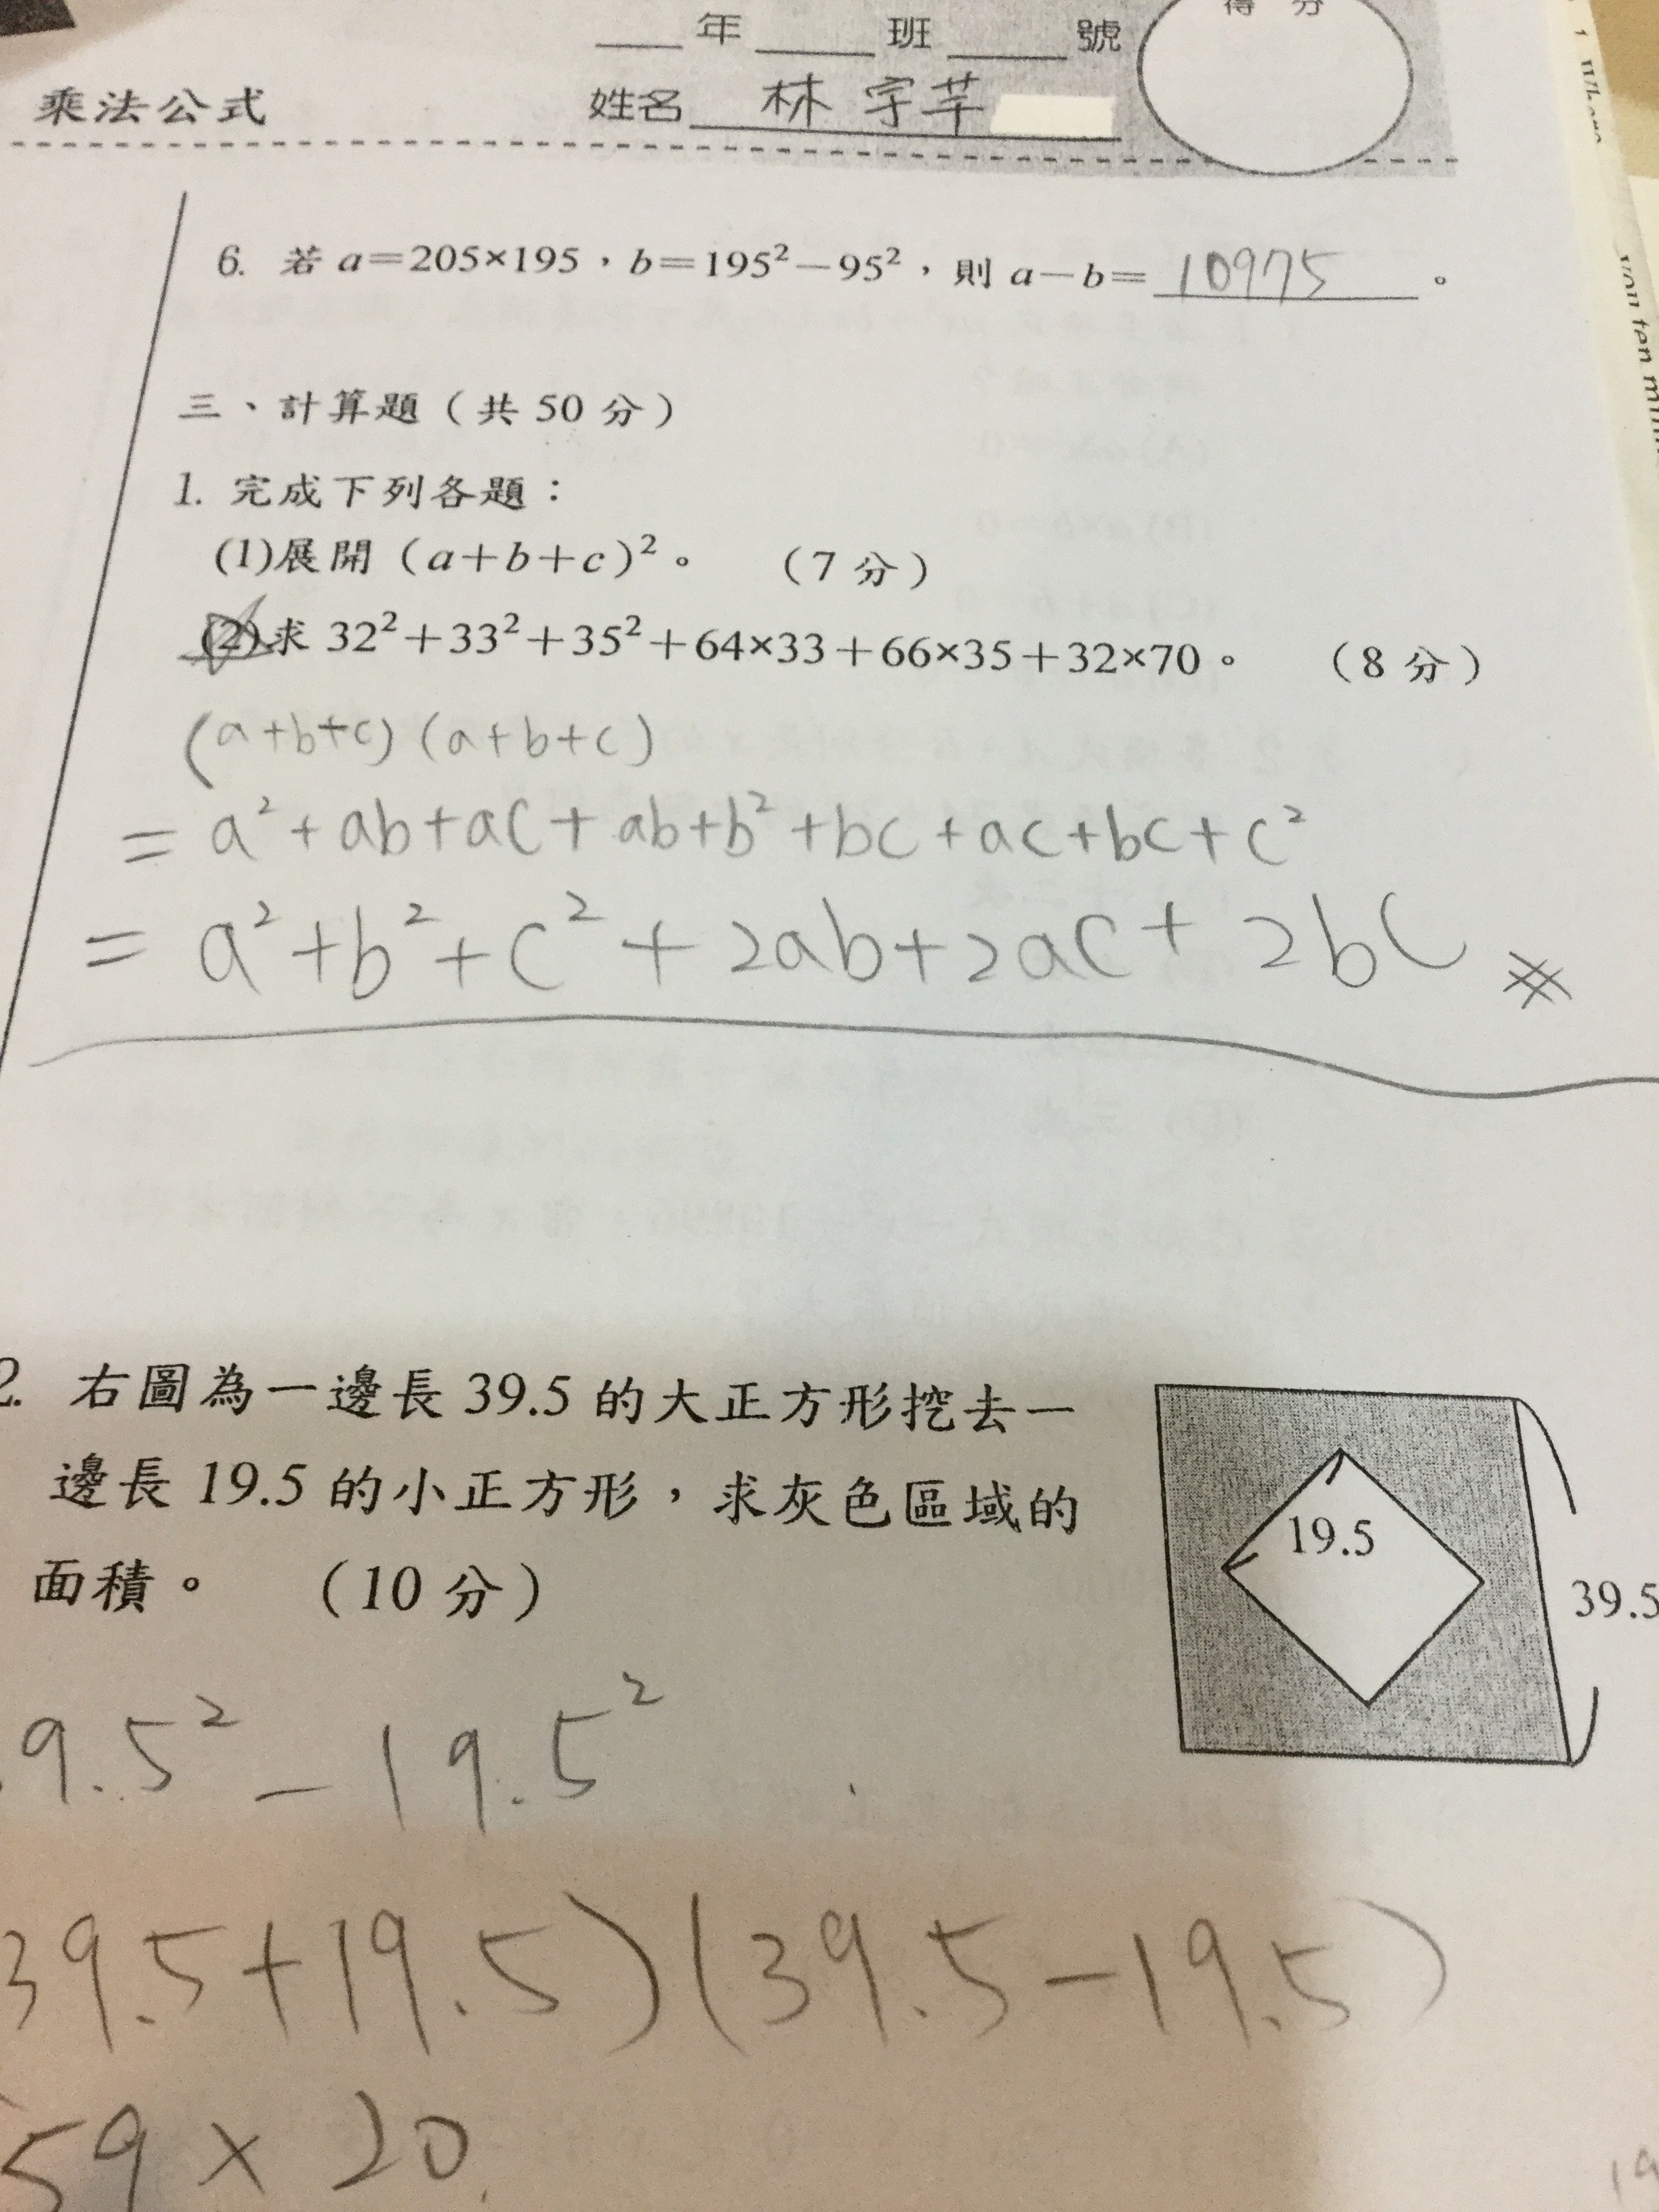 得 分
年 班 號
乘法公式 姓名 林
6. 若 a=205×195,b=195²-95²,則 a-b= 10975 。
三、計算題(共 50 分)
1. 完成下列各題:
(1)展開(a+b+c)²。 (7 分)
(2)求 32²+33²+35²+64×33+66×35+32×70。 (8 分)
(a+b+c)(a+b+c)
= a²+ab+ac+ab+b²+bc+ac+bc+c²
= a²+b²+c²+2ab+2ac+2bc
2. 右圖為一邊長 39.5 的大正方形挖去一
邊長 19.5 的小正方形,求灰色區域的
面積。 (10 分)
19.5
39.5
9.5²-19.5²
39.5+19.5)(39.5-19.5)
59×20